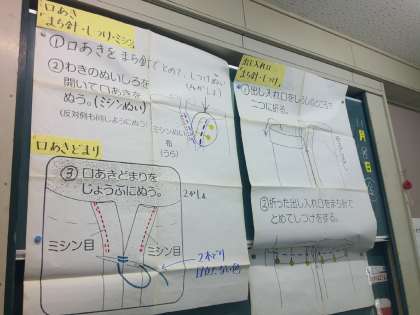 口あき
まち針・しつけ・ミシン
①口あきをまち針でとめて、しつけぬい
②わきのぬいしろを
開いて口あきを
ぬう。(ミシンぬい)
(反対側も同じようにぬう)
ミシンぬい
布
(うら)
口あきどまり
③口あきどまりを
じょうぶにぬう。
2かしょ
ミシン目
ミシン目
出し入れ口
まち針・しつけ
①出し入れ口をしるしのところで
二つに折る。
②折った出し入れ口をまち針で
とめてしつけをする。
月
日